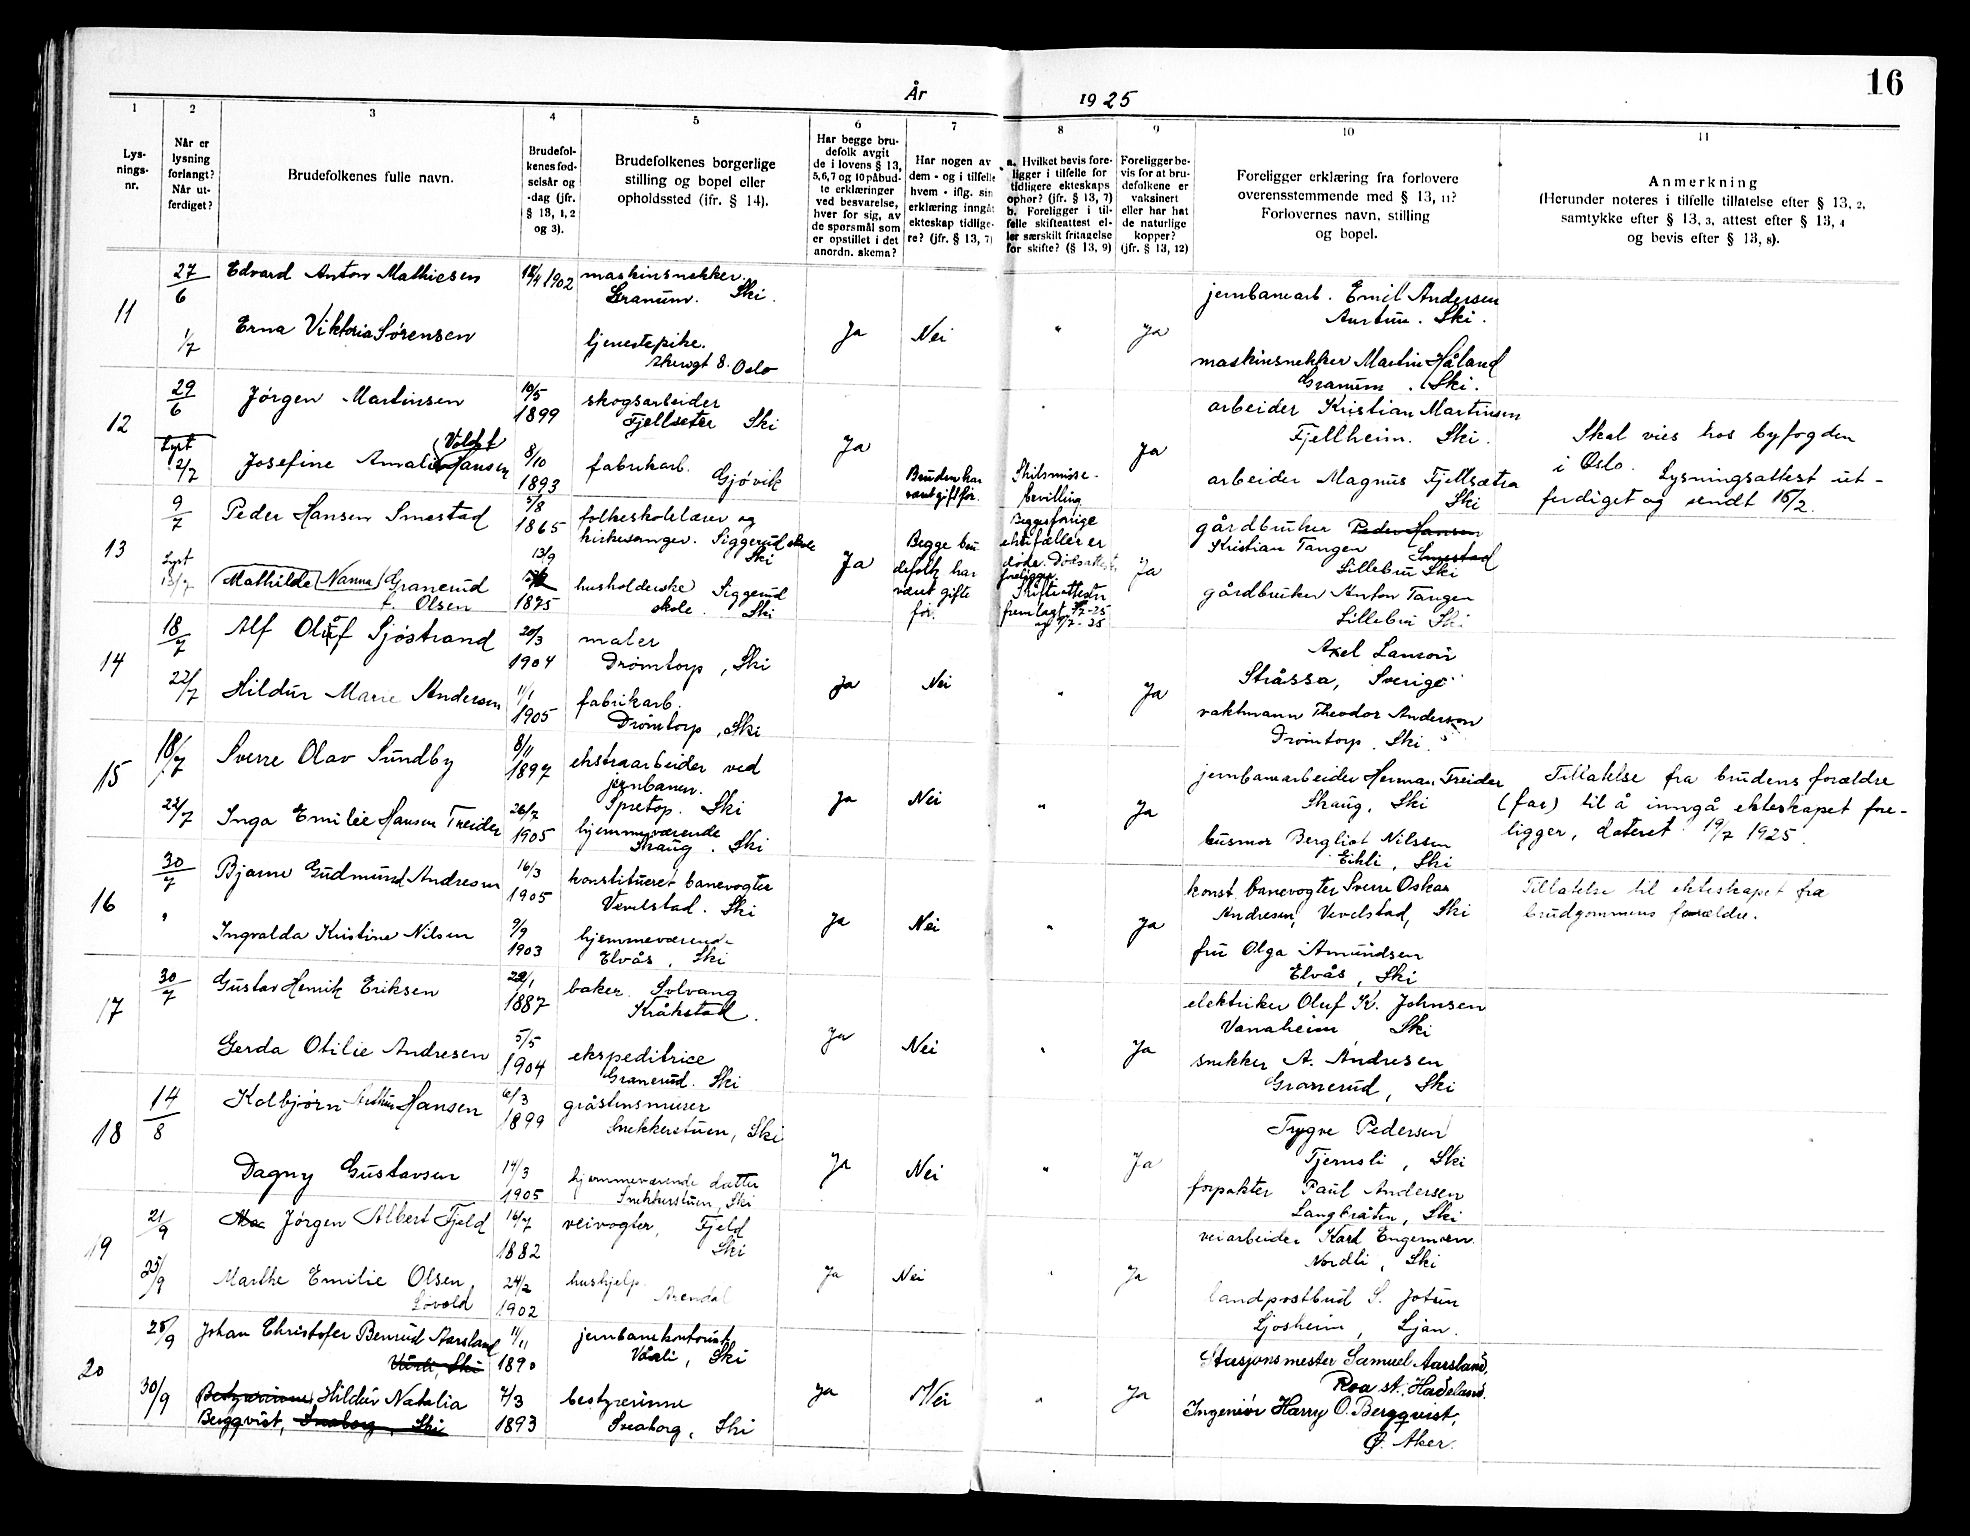 16
År 1925
1 2 3 4 5 6 7 8 9 10 11
Lys-
nings-
nr.
Når er
lysning
forlangt?
Når ut-
ferdiget?
Brudefolkenes fulle navn.
Brudefol-
kenes fød-
selsår og
-dag (jfr.
§ 13, 1, 2
og 3).
Brudefolkenes borgerlige
stilling og bopel eller
opholdssted (ifr. § 14).
Har begge bru-
defolk avgit
de i lovens § 13,
5, 6, 7 og 10 påbud-
te erklæringer
ved besvarelse,
hver for sig, av
de spørsmål som
er opstillet i det
anordn. skema?
Har nogen av
dem - og i tilfelle
hvem - iflg. sin
erklæring inngåt
ekteskap tidlige-
re? (jfr. § 13, 7)
a. Hvilket bevis fore-
ligger i tilfelle for
tidligere ekteskaps
ophør? (jfr. § 13, 7)
b. Foreligger i til-
felle skifteattest el-
ler særskilt fritagelse
for skifte? (§ 13, 9)
Foreligger be-
vis for at bru-
defolkene er
vaksinert
eller har hat
de naturlige
kopper?
(jfr. § 13, 12)
Foreligger erklæring fra forlovere
overensstemmende med § 13, 11?
Forlovernes navn, stilling
og bopel.
Anmerkning
(Herunder noteres i tilfelle tillatelse efter § 13, 2,
samtykke efter § 13, 3, attest efter § 13, 4
og bevis efter § 13, 8).
11
27/6 Edvard Anton Mathiesen 1902 maskinsnekker.
Granum. Ski.
1/7 Erna Viktoria Sørensen tjenestepike.
8. Oslo
Ja Nei " Ja
jernbanearb. Emil Andersen
Aurtun. Ski.
maskinsnekker Martin Håland
Granum. Ski.
12
29/6 Jørgen Martinsen 10/5
1899 skogsarbeider
Fjellseter Ski
Lyst
2/7 Josefine Amalie Hansen
Voldst 8/10
1893 fabrikarb.
Gjøvik
Ja
Bruden har
vært gift før.
Skilsmisse-
bevilling
Ja
arbeider Kristian Martinsen
Fjellheim. Ski.
arbeider Magnus Fjellsætra
Ski
Skal vies hos byfogden
i Oslo. Lysningsattest ut-
ferdiget og sendt 16/2.
13
9/7 Peder Hansen Smestad 5/8
1865 folkeskolelærer og
kirkesanger. Siggerud skole
Ski
Lyst
13/7 Mathilde (Nanna) Granerud
f. Olsen 13/9
1875 husholderske Siggerud
skole. Ski
Ja
Begge bru
defolk har
vært gifte
før.
Begges forrige
ektefæller er
døde. Dødsattest
foreligger.
Skifteattester
fremlagt 9/7-25
Ja
gårdbruker Peder Hansen
Smestad
Kristian Tangen
Lillebru Ski
gårdbruker Anton Tangen
Lillebru Ski
14
18/7 Alf Oluf Sjöstrand 20/3
1904 maler
Drømtorp, Ski
22/7 Hildur Marie Andersen 1/1
1905 fabrikarb.
Drømtorp, Ski
Ja Nei " Ja
Axel Larsson
Stråssa, Sverige
vaktmann Theodor Anderson
Drømtorp. Ski.
15
18/7 Sverre Olav Sundby 8/11
1897 ekstraarbeider ved
jernbanen.
Spretop. Ski
22/7 Inga Emilie Hansen Treider 26/7
1905 hjemmeværende
Skaug. Ski
Ja Nei " Ja
jernbanearbeider Herman Treider
Skaug, Ski
husmor Bergliot Nilssen
Eikli, Ski
Tillatelse fra brudens forældre
(far) til å inngå ekteskapet fore-
ligger, dateret 19/7 1925.
16
30/7 Bjarne Gudmund Andresen 16/3
1905 konstitueret banevogter
Vevelstad. Ski
" Ingvalda Kristine Nilsen 9/9
1903 hjemmeværende
Elvås, Ski
Ja Nei " Ja
konst. banevogter Sverre Oskar
Andresen, Vevelstad, Ski
fru Olga Amundsen
Elvås, Ski
Tillatelse til ekteskapet fra
brudgommens forældre.
17
30/7 Gustav Henrik Eriksen
1887 baker. Solvang
Kråkstad.
Gerda Otilie Andresen 5/5
1904 ekspeditrice
Granerud. Ski
Ja Nei " Ja
elektriker Oluf K. Johnsen
Vanaheim Ski
snekker A. Andresen
Granerud, Ski
18
14/8 Kolbjørn Arthur Hansen 6/3
1899 gråstensmurer
Snekkerstuen, Ski
Dagny Gustavsen 14/3
1905 hjemmeværende datter
Snekkerstuen, Ski
Ja Nei " Ja
Trygve Pedersen
Tjernsli, Ski
forpakter Paul Andersen
Langbråten, Ski
19
21/9 Jørgen Albert Fjeld 16/7
1882 veivogter, Fjeld
Ski
25/9 Marthe Emilie Olsen,
Løvold 24/2
1902 hushjelp.
Arendal
Ja Nei " Ja
veiarbeider Karl Engemoen.
Nordli, Ski
landpostbud S. Jotun
Ljosheim, Ljan.
20
25/9 Johan Christofer Benrud Aarsland
Vårli, Ski 11/11
1890 jernbanekontorist
Vårli, Ski
30/9 Bestyrerinne Hildur Natalia
Bergqvist, Sveaborg, Ski 7/3
1893 bestyrerinne
Sveaborg, Ski
Ja Nei " Ja
Stasjonsmester Samuel Aarsland,
Roa st. Hadeland.
Ingeniør Harry O. Bergqvist,
Ø. Aker.